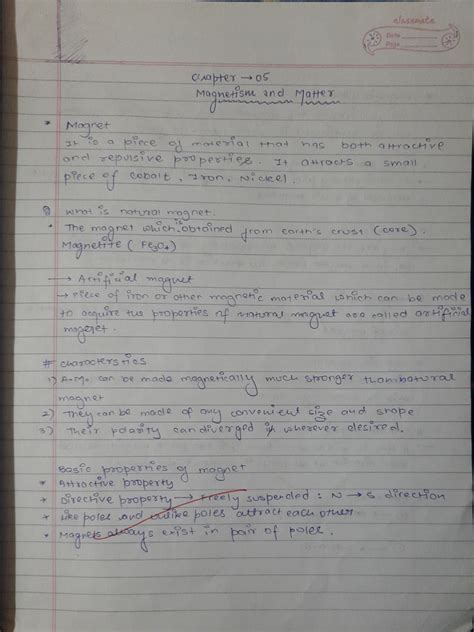 classmate
Date
Page
Chapter → 05
Magnetism and Matter
* Magnet
It is a piece of material that has both attractive
and repulsive properties. It attracts a small
piece of cobalt, Iron, Nickel.
Q) what is natural magnet.
* The magnet which is obtained from earth's crust (core).
Magnetite (Fe3O4)
→ Artificial magnet
→ Piece of iron or other magnetic material which can be made
to acquire the properties of natural magnet are called artificial
magnet.
# characterstics
1) A.M. can be made magnetically much stronger than natural
magnet
2) They can be made of any convenient size and shape
3) Their polarity can diverged in wherever desired.
Basic properties of magnet
* Attractive property
* Directive property → Freely suspended : N → S direction
* Like poles and unlike poles attract each other
* Magnets always exist in pair of poles.